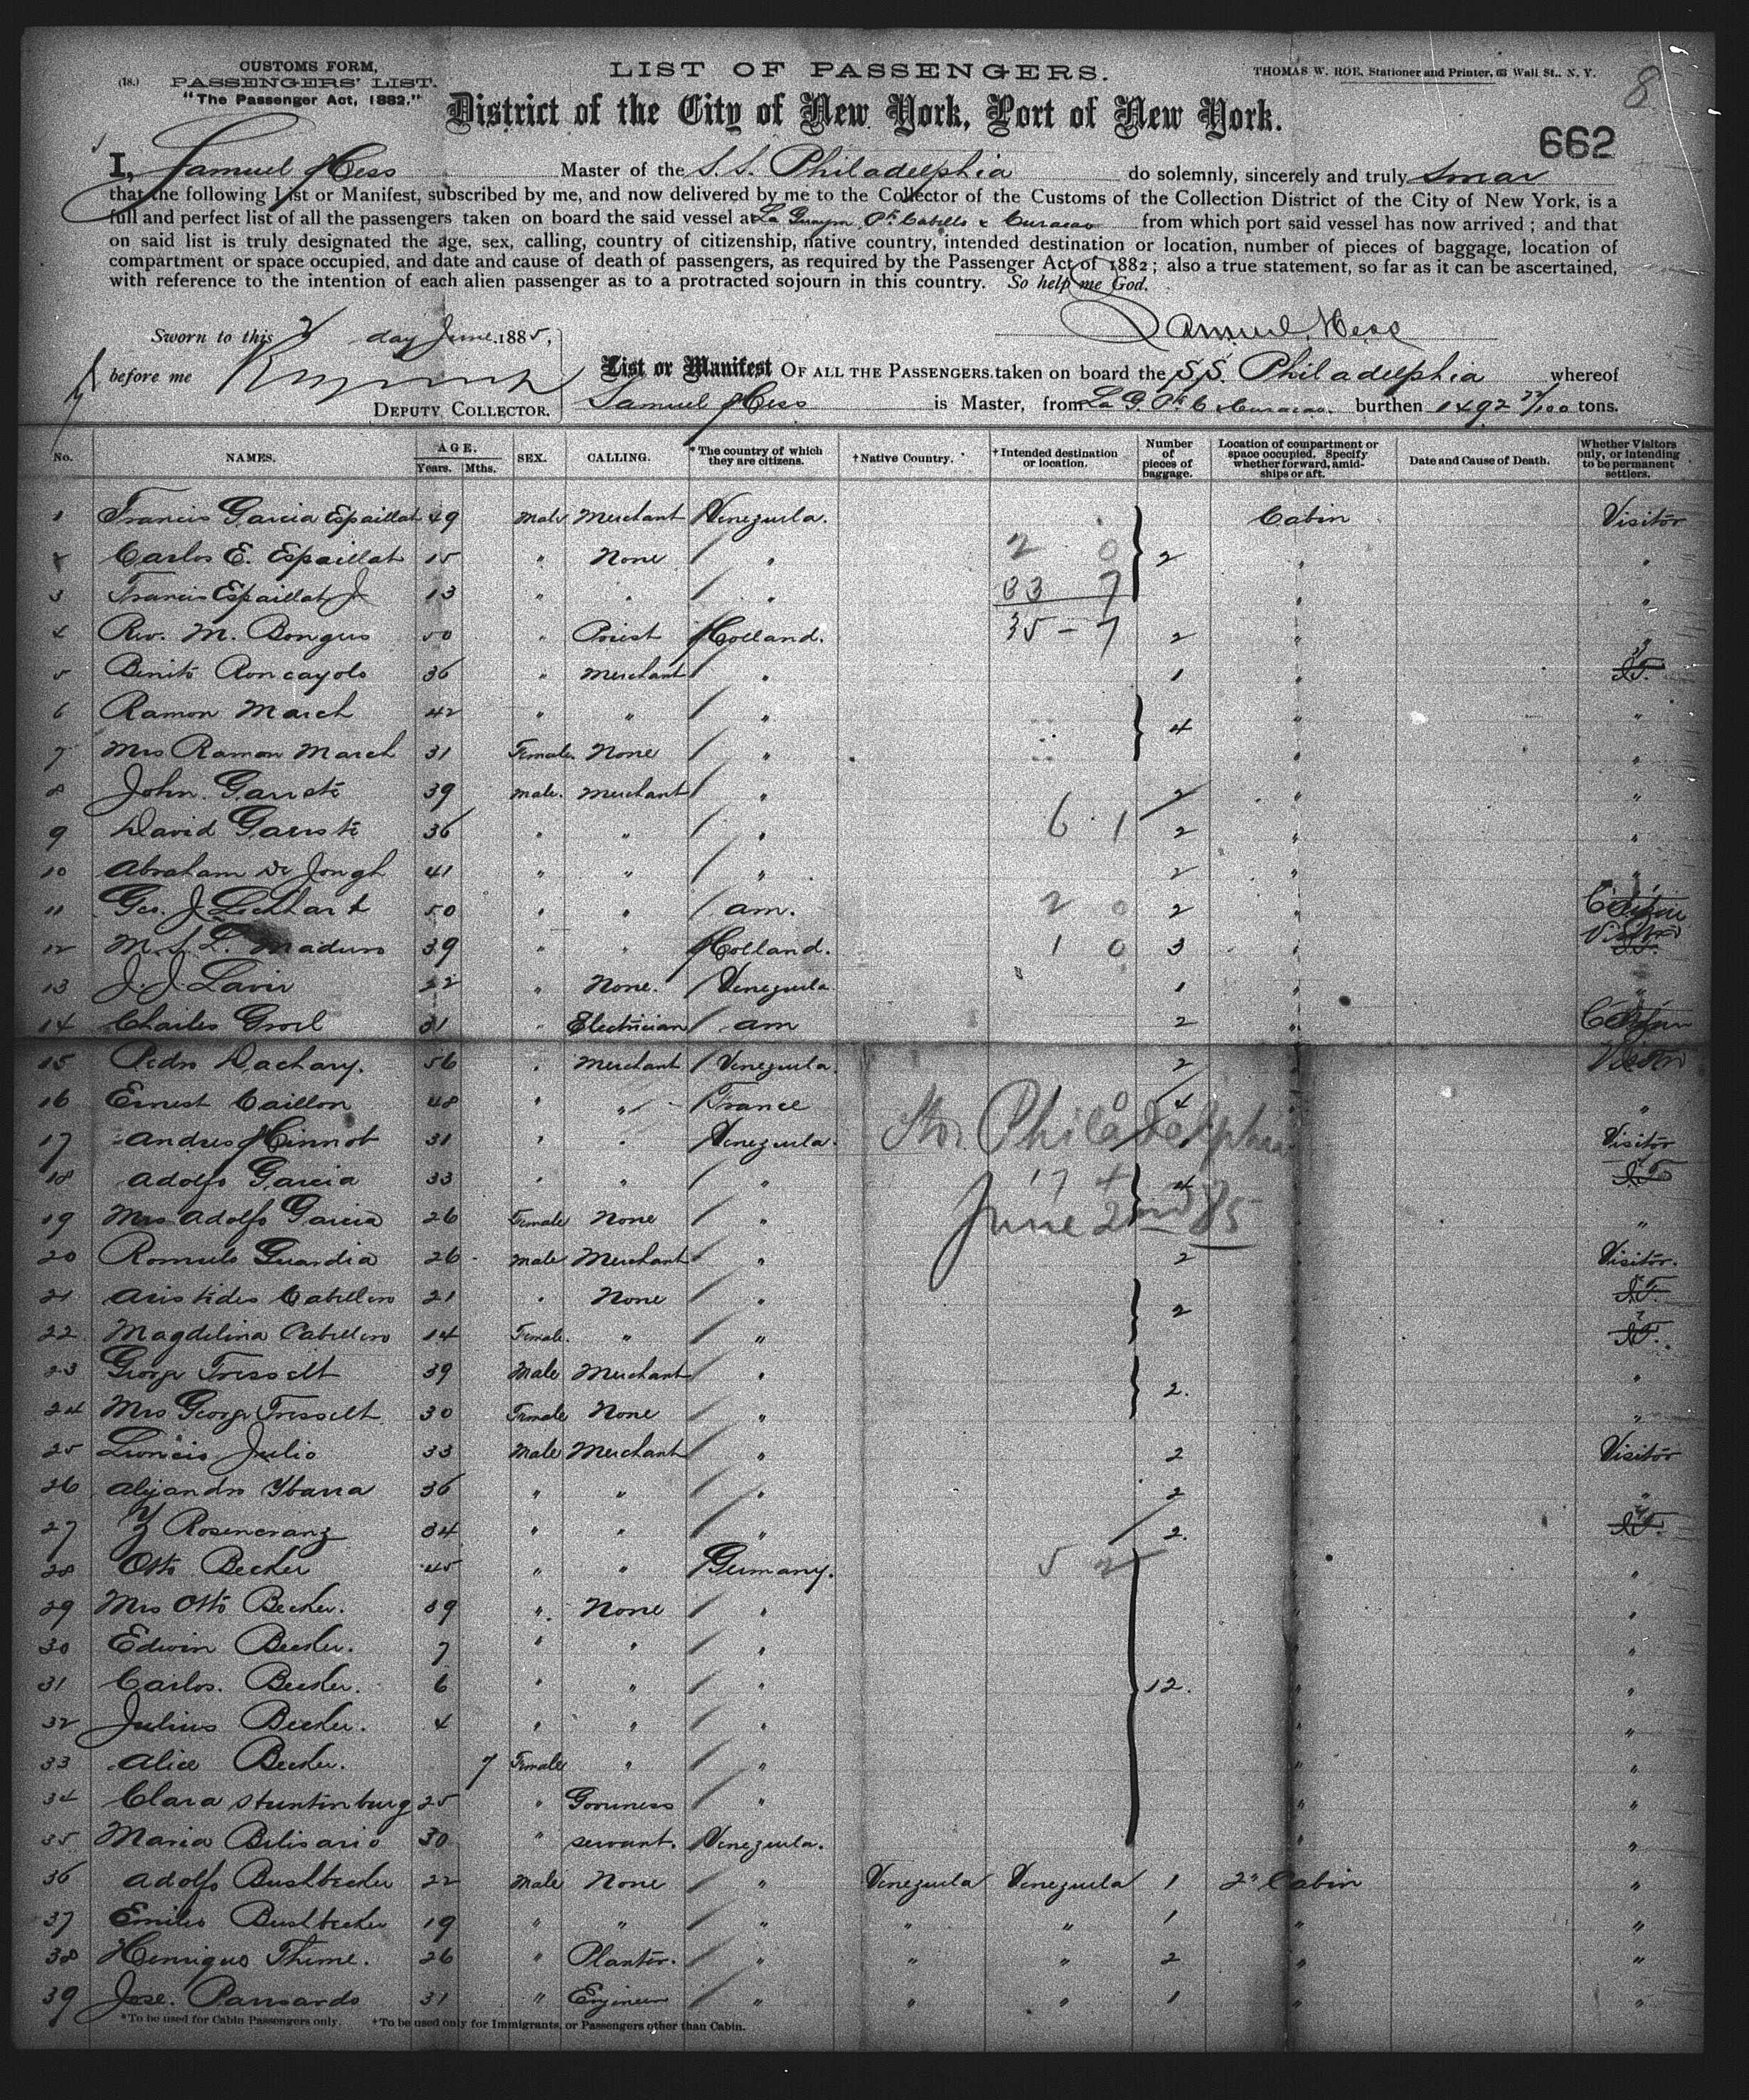 CUSTOMS FORM,
(18.) PASSENGERS' LIST.
"The Passenger Act, 1882."
LIST OF PASSENGERS.
THOMAS W. ROE, Stationer and Printer, 63 Wall St., N. Y.
8
District of the City of New York, Port of New York.
662
I, Samuel Hess Master of the S.S. Philadelphia do solemnly, sincerely and truly swear
that the following List or Manifest, subscribed by me, and now delivered by me to the Collector of the Customs of the Collection District of the City of New York, is a
full and perfect list of all the passengers taken on board the said vessel at La Guayra, Pto Cabello & Curacao from which port said vessel has now arrived; and that
on said list is truly designated the age, sex, calling, country of citizenship, native country, intended destination or location, number of pieces of baggage, location of
compartment or space occupied, and date and cause of death of passengers, as required by the Passenger Act of 1882; also a true statement, so far as it can be ascertained,
with reference to the intention of each alien passenger as to a protracted sojourn in this country. So help me God.
Samuel Hess
Sworn to this 2 day June 1885,
before me
DEPUTY COLLECTOR.
List or Manifest OF ALL THE PASSENGERS taken on board the S.S. Philadelphia whereof
Samuel Hess is Master, from La G. Pto C & Curacao. burthen 1492 /100 tons.
No. NAMES. AGE. Years. Mths. SEX. CALLING. *The country of which they are citizens. †Native Country. †Intended destination or location. Number of pieces of baggage. Location of compartment or space occupied. Specify whether forward, amidships or aft. Date and Cause of Death. Whether Visitors only, or intending to be permanent settlers.
1 Francis Garcia Espaillat 49 Male Merchant Venezuela. Cabin Visitor
2 Carlos E. Espaillat 15 " None " 2 0 2 " "
3 Francis Espaillat Jr 13 " " " 33 7 " "
4 Rev. M. Bongers 50 " Priest Holland. 35 - 7 2 " "
5 Benito Roncayolo 36 " Merchant " 1 "
6 Ramon March 42 " " " 4 " "
7 Mrs Ramon March 31 Female. None " " "
8 John Garcste 39 Male. Merchant " 2 " "
9 David Gariste 36 " " " 6 1 2 " "
10 Abraham De Jongh 41 " " " 2 " "
11 Geo. J. Lichhart 50 " " Am. 2 0 2 "
12 M. S. L. Maduro 39 " " Holland. 1 0 3 " Visitor
13 J. J. Lavie 22 " None. Venezuela 1 " "
14 Charles Groel 31 " Electrician Am 2 "
15 Pedro Dachary. 56 " Merchant Venezuela. 2 Visitor
16 Ernest Caillon 48 " " France 4 "
17 Andres Hinnot 31 " " Venezuela. Visitor
Str. Philadelphia
18 Adolfo Garcia 33 " " " 17 4 4
June 2nd 85
19 Mrs Adolfo Garcia 26 Female None " "
20 Romulo Guardia 26 Male Merchant " 2 Visitor.
21 Aristides Cabellero 21 " None " 2
22 Magdelina Cabellero 14 Female. " "
23 George Tresselt 39 Male Merchant " 2. "
24 Mrs George Tresselt 30 Female None " "
25 Leoncio Julio 33 Male Merchant " 2 Visitor
26 Alejandro Ybarra 36 " " " 2 "
27 Y Rosencranz 34 " " " 2.
28 Otto Becker 45 " " Germany. 5 2 "
29 Mrs Otto Becker. 39 " None " "
30 Edwin Becker. 7 " " " "
31 Carlos. Becker. 6 " " " 12. "
32 Julius Becker. 4 " " " "
33 Alice Becker. 7 Female " " "
34 Clara Stuntinburg 25 " Governess " "
35 Maria Belisario 30 " servant. Venezuela. "
36 Adolfo Bushbecker 22 Male None " Venezuela Venezuela 1 2" Cabin "
37 Emilio Bushbecker 19 " " " " " 1 " "
38 Henrique Thime. 26 " Planter. " " " 2 " "
39 Jose. Pansardo 31 " Engineer " " " 1 " "
*To be used for Cabin Passengers only. †To be used only for Immigrants, or Passengers other than Cabin.